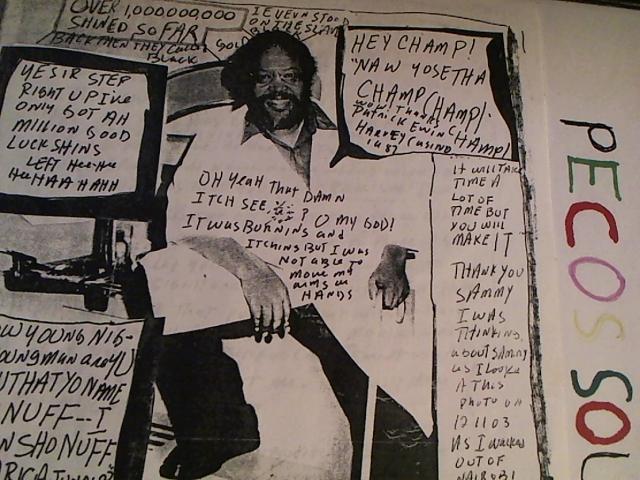 OVER 1,000,000,000
SHINED SO FAR
BACK THEN THEY
BLACK
GOLD
IEVEVN STOOD
ON THE SLAVE
HEY CHAMP!
"NAW YOSETHA
CHAMP CHAMP!
WOW! THANKS
PATRICK EWIN CHAMP!
HARVEY CASINO
1987
YESIR STEP
RIGHT UP IVE
ONLY GOT AH
MILLION GOOD
LUCK SHINS
LEFT Hee-Hee
HeeHAAHAHH
OH YeaH That DAMN
ITCH SEE, ? O MY GOD!
IT WAS BURNINS and
ITCHINS BUT I WAS
NOT ABLE TO
MOVE MY
ARMS or
HANDS
IT WILL TAKE
TIME A
LOT OF
TIME BUT
YOU WILL
MAKE IT
THANK YOU
SAMMY
I WAS
THINKING
about SAMMY
as I LOOKED
A THIS
PHOTO ON
12 11 03
AS I WALKED
OUT OF
NAIROBI
OW YOUNG NIG-
OUNGMAN are YU
UTHAT YO NAME
NUFF--I
N SHO NUFF
PECOS SOU